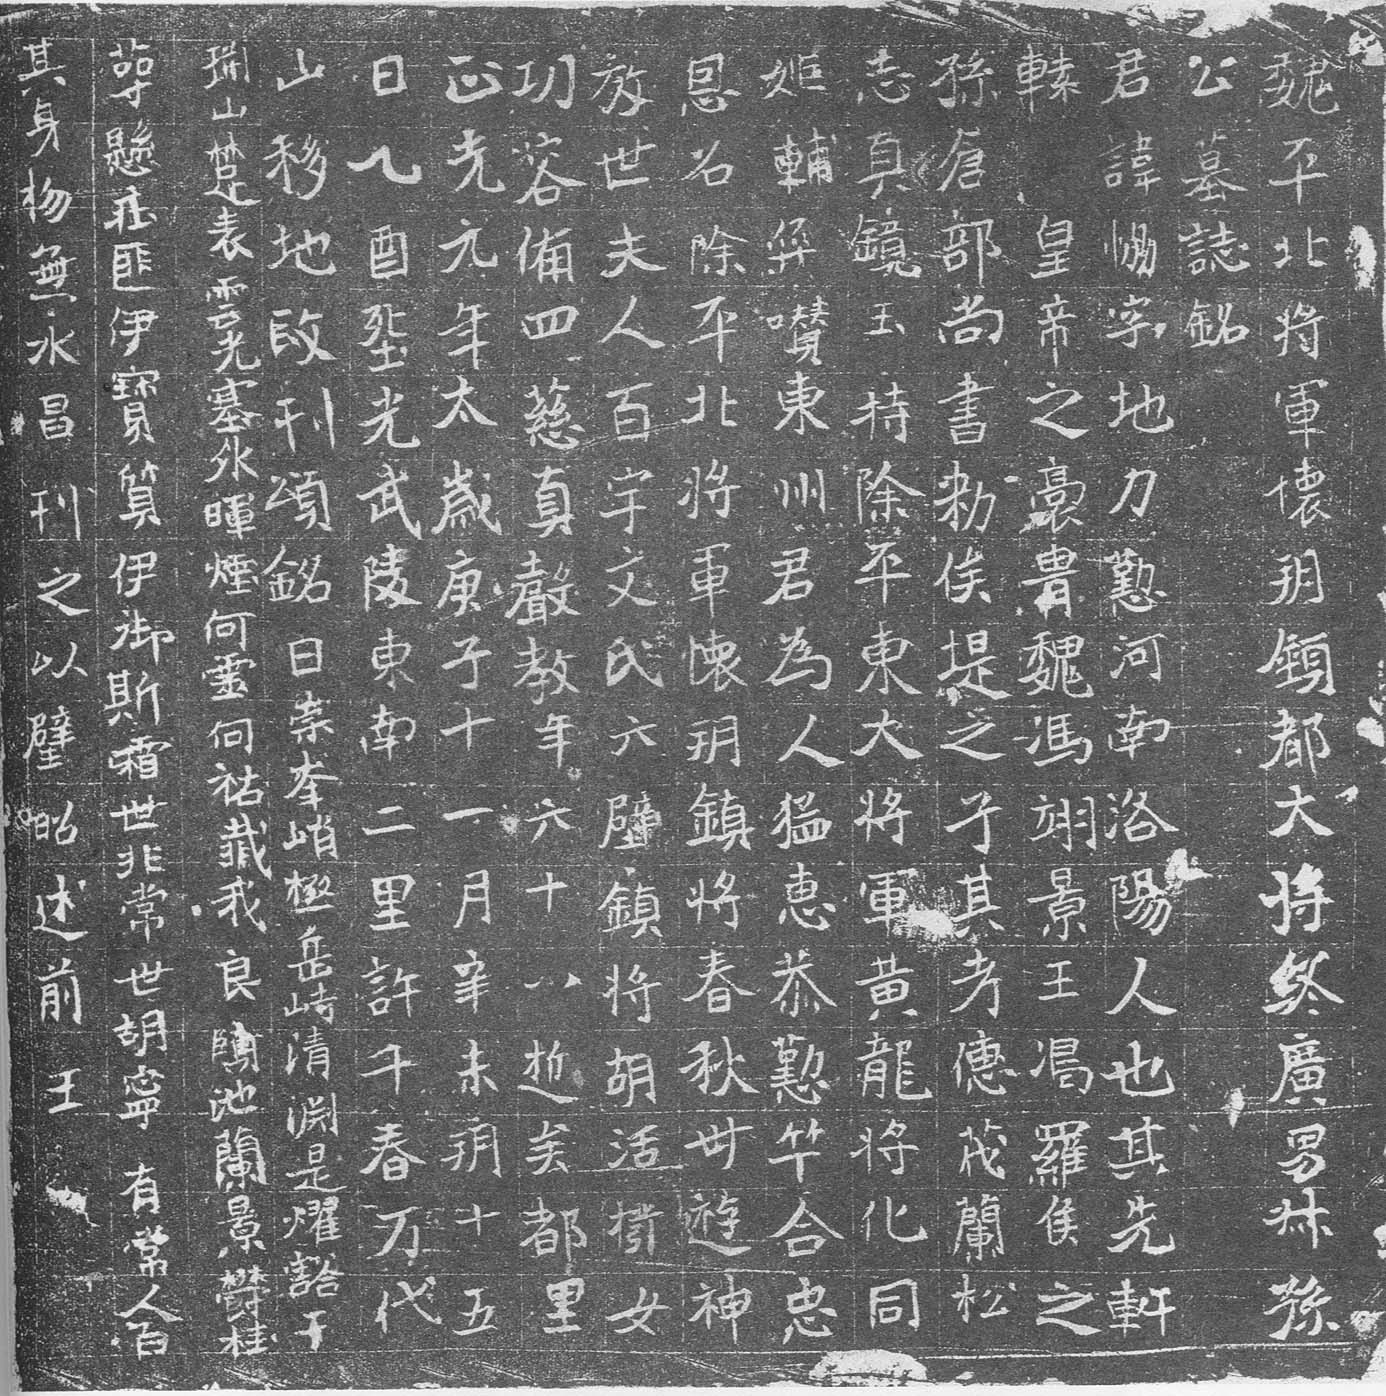 魏平北将軍懷玥鎮都大将終廣男叔孫
公墓誌銘
君諱協字地力懃河南洛陽人也其先軒
轅皇帝之裔胄魏馮翊景王渴羅侯之
孫倉部尚書勑俟堤之子其考德茂蘭松
志真鏡玉特除平東大将軍黄龍将化同
姬輔弈囋東州君為人猛惠恭懃竿合忠
恩名除平北将軍懷玥鎮将春秋卌遊神
放世夫人百宇文氏六壁鎮将胡活撥女
功容備四慈真聲教年六十八逝矣都里
正光元年太歲庚子十一月辛未玥十五
日乙酉塟光武陵東南二里許千春万代
山移地改刊頌銘曰崇峯峭極岳峙清渊是耀豁于
瑞山楚表雲光塞外暉煙何靈何祐戢我良池蘭景欝桂
夢懸匪伊寶筭伊御斯霜世非常世胡寧有常人百
其身物無水昌刊之以壁昭述前王